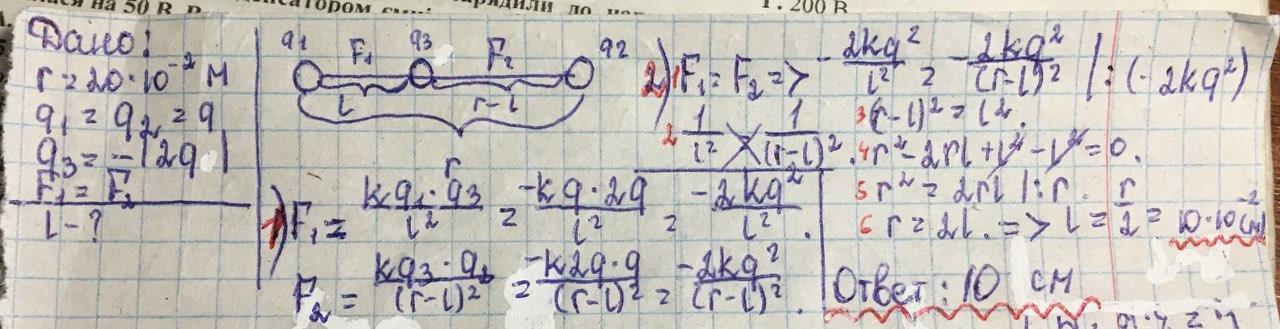 лася на 50 В. Р
денсатором
рядили до
1. 200 В
Дано:
r = 20·10⁻² м
q1 = q2 = q
q3 = -|2q|
F1 = F2
l - ?
q1 F1 q3 F2 q2
l r-l
r
1) F1 = kq1·q3/l² = -kq·2q/l² = -2kq²/l².
F2 = kq3·q2/(r-l)² = -k2q·q/(r-l)² = -2kq²/(r-l)².
2) 1 F1 = F2 => -2kq²/l² = -2kq²/(r-l)² | :(-2kq²)
2 1/l² 1/(r-l)².
3 (r-l)² = l².
4 r² - 2rl + l² - l² = 0.
5 r² = 2rl |: r.
6 r = 2l. => l = r/2 = 10·10⁻² (м)
Ответ: 10 см